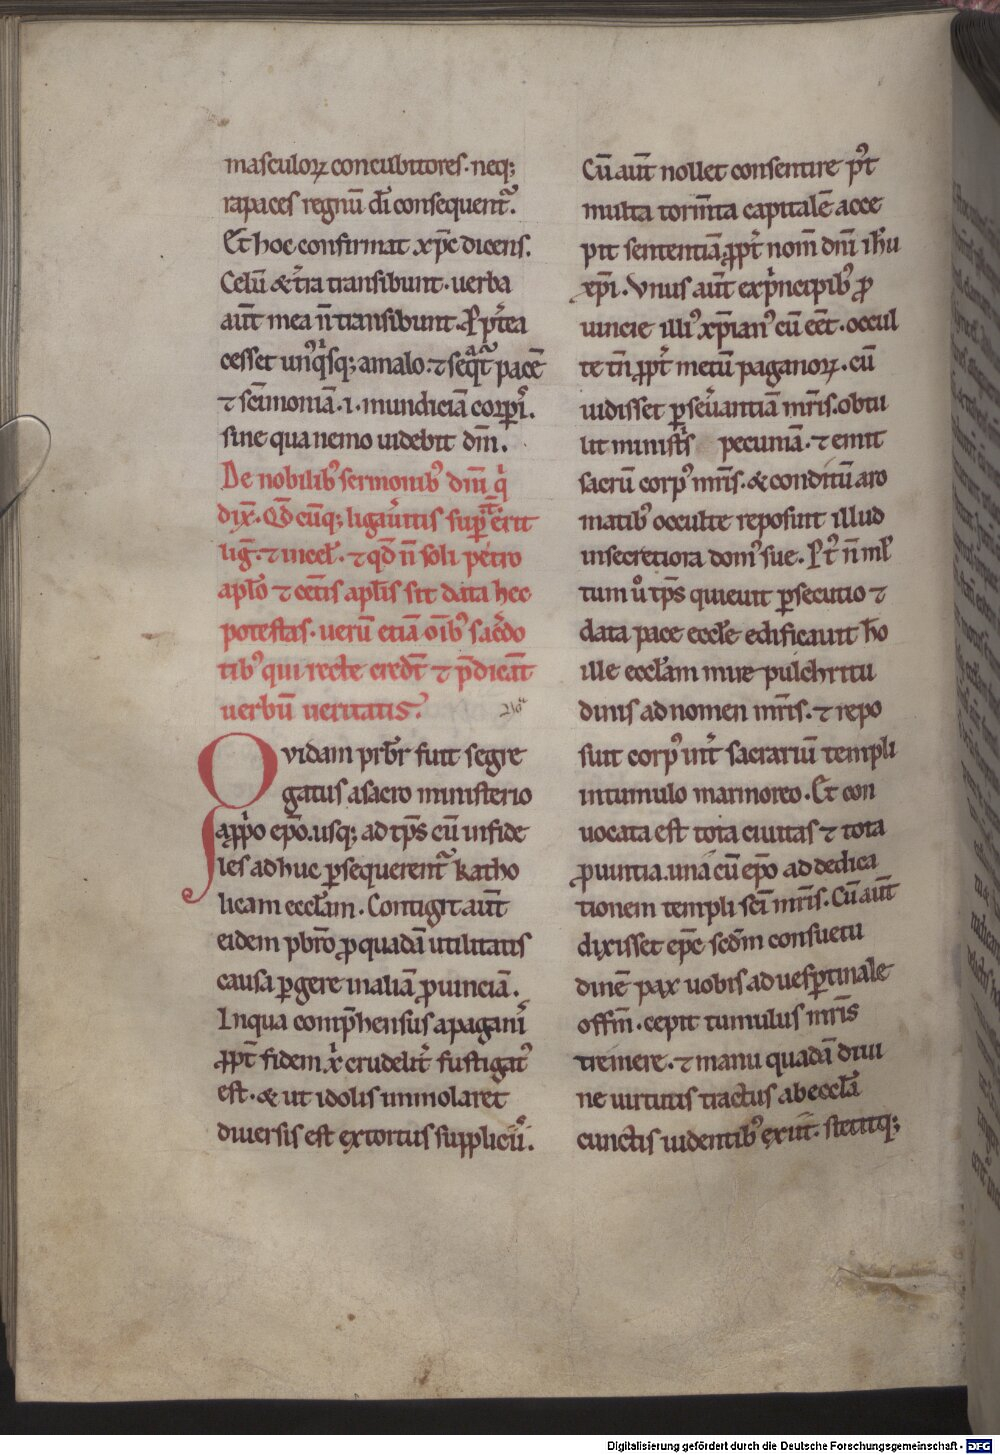 masculoꝝ concubitores· neq;
rapaces regnū dī consequent᷑.
Et hoc confirmat xp̄c dicens.
Celū & t̄ra transibunt· uerba
aūt mea n̄ transibunt. P̱pt̄ea
cesset unꝰqͥsq; a malo. ⁊ seqᷓt᷑ pacē
⁊ sc̄imoniā· i· mundiciā corpr̄.
sine qua nemo uidebit dm̄.
De nobilibꝰ sermonibꝰ dn̄i qͥ
dix̄. Qd̄cūq; ligau̾itis sup t̾ erit
lig̅. ⁊ in cel̄. ⁊ qd̄ n̄ soli petro
apl̄o ⁊ cet̾is apl̄is sit data hec
potestas· uerū etiā om̄ibꝰ sac̾do
tibꝰ qui recte credt̄ ⁊ p̄dicāt
uerbū ueritatis.
Quidam prb̄r fuit segre
gatus a sacro ministerio
a p̱p̱o ep̄o. usq; ad tp̄s cū infide
les adhuc ꝑsequerent᷑ katho
licam eccl̄am. Contigit aūt
eidem pbr̄o ꝓ quadā utilitatis
causa ꝑgere in aliā ꝓuinciā.
In qua comp̄hensus a paganis
ꝓpt̄ fidem xͥ crudelit̾ fustigatꝰ
est· & ut idolis immolaret
diuersis est extortus suppliciis.
Cū aūt nollet consentire p̾t
multa torm̄ta capitalē acce
pit sententiā ꝓpt̄ nom̄ dn̄i ih̄u
xp̄i. Vnus aūt ex pͥncipibꝰ ꝓ
uincie illiꝰ xp̄ianꝰ cū eēt· occul
te tn̄ ꝓpt̾ metū paganoꝝ· cū
uidisset ꝑseu̾antiā mr̄is. obtu
lit ministͥs pecuniā· ⁊ emit
sacrū corpꝰ mr̄is· & conditū aro
matibꝰ occulte reposuit illud
in secretiora domꝰ sue. P̾t n̄ ml̄
tum uͦ tp̄s quieuit ꝑsecutio ⁊
data pace eccl̄e edificauit h̄o
ille eccl̄am mire pulchritu
dinis ad nomen mr̄is· ⁊ repo
suit corpꝰ int̾ sacrariū templi
in tumulo marmoreo. Et con
uocata est tota ciuitas ⁊ tota
ꝓuintia. una cū ep̄o ad dedica
tionem templi sc̄i mr̄is. Cū aūt
dixisset ep̄c sc̄dm consuetu
dinē pax uobis ad uesꝑtinale
offm̄. cepit tumulus mr̄is
tremere· ⁊ manu quadā diui
ne uirtutis tractus ab eccl̄a
cunctis uidentibꝰ exiit· stetitq;
Digitalisierung gefördert durch die Deutsche Forschungsgemeinschaft - DFG